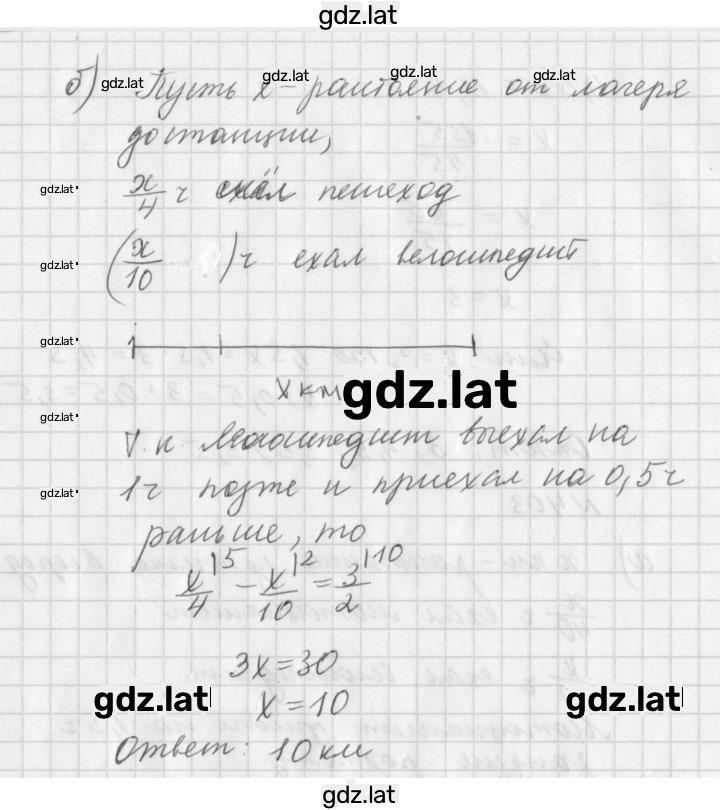 gdz.lat
б) Пусть x - расстояние от лагеря
до станции,
x/4 ч шёл пешеход
(x/10) ч ехал велосипедист
x км
Т. к. велосипедист выехал на
1 ч позже и приехал на 0,5 ч
раньше, то
x/4 |5 - x/10 |2 = 3/2 |10
3x = 30
x = 10
Ответ: 10 км
gdz.lat
gdz.lat
gdz.lat
gdz.lat
gdz.lat
gdz.lat
gdz.lat
gdz.lat
gdz.lat
gdz.lat
gdz.lat
gdz.lat
gdz.lat